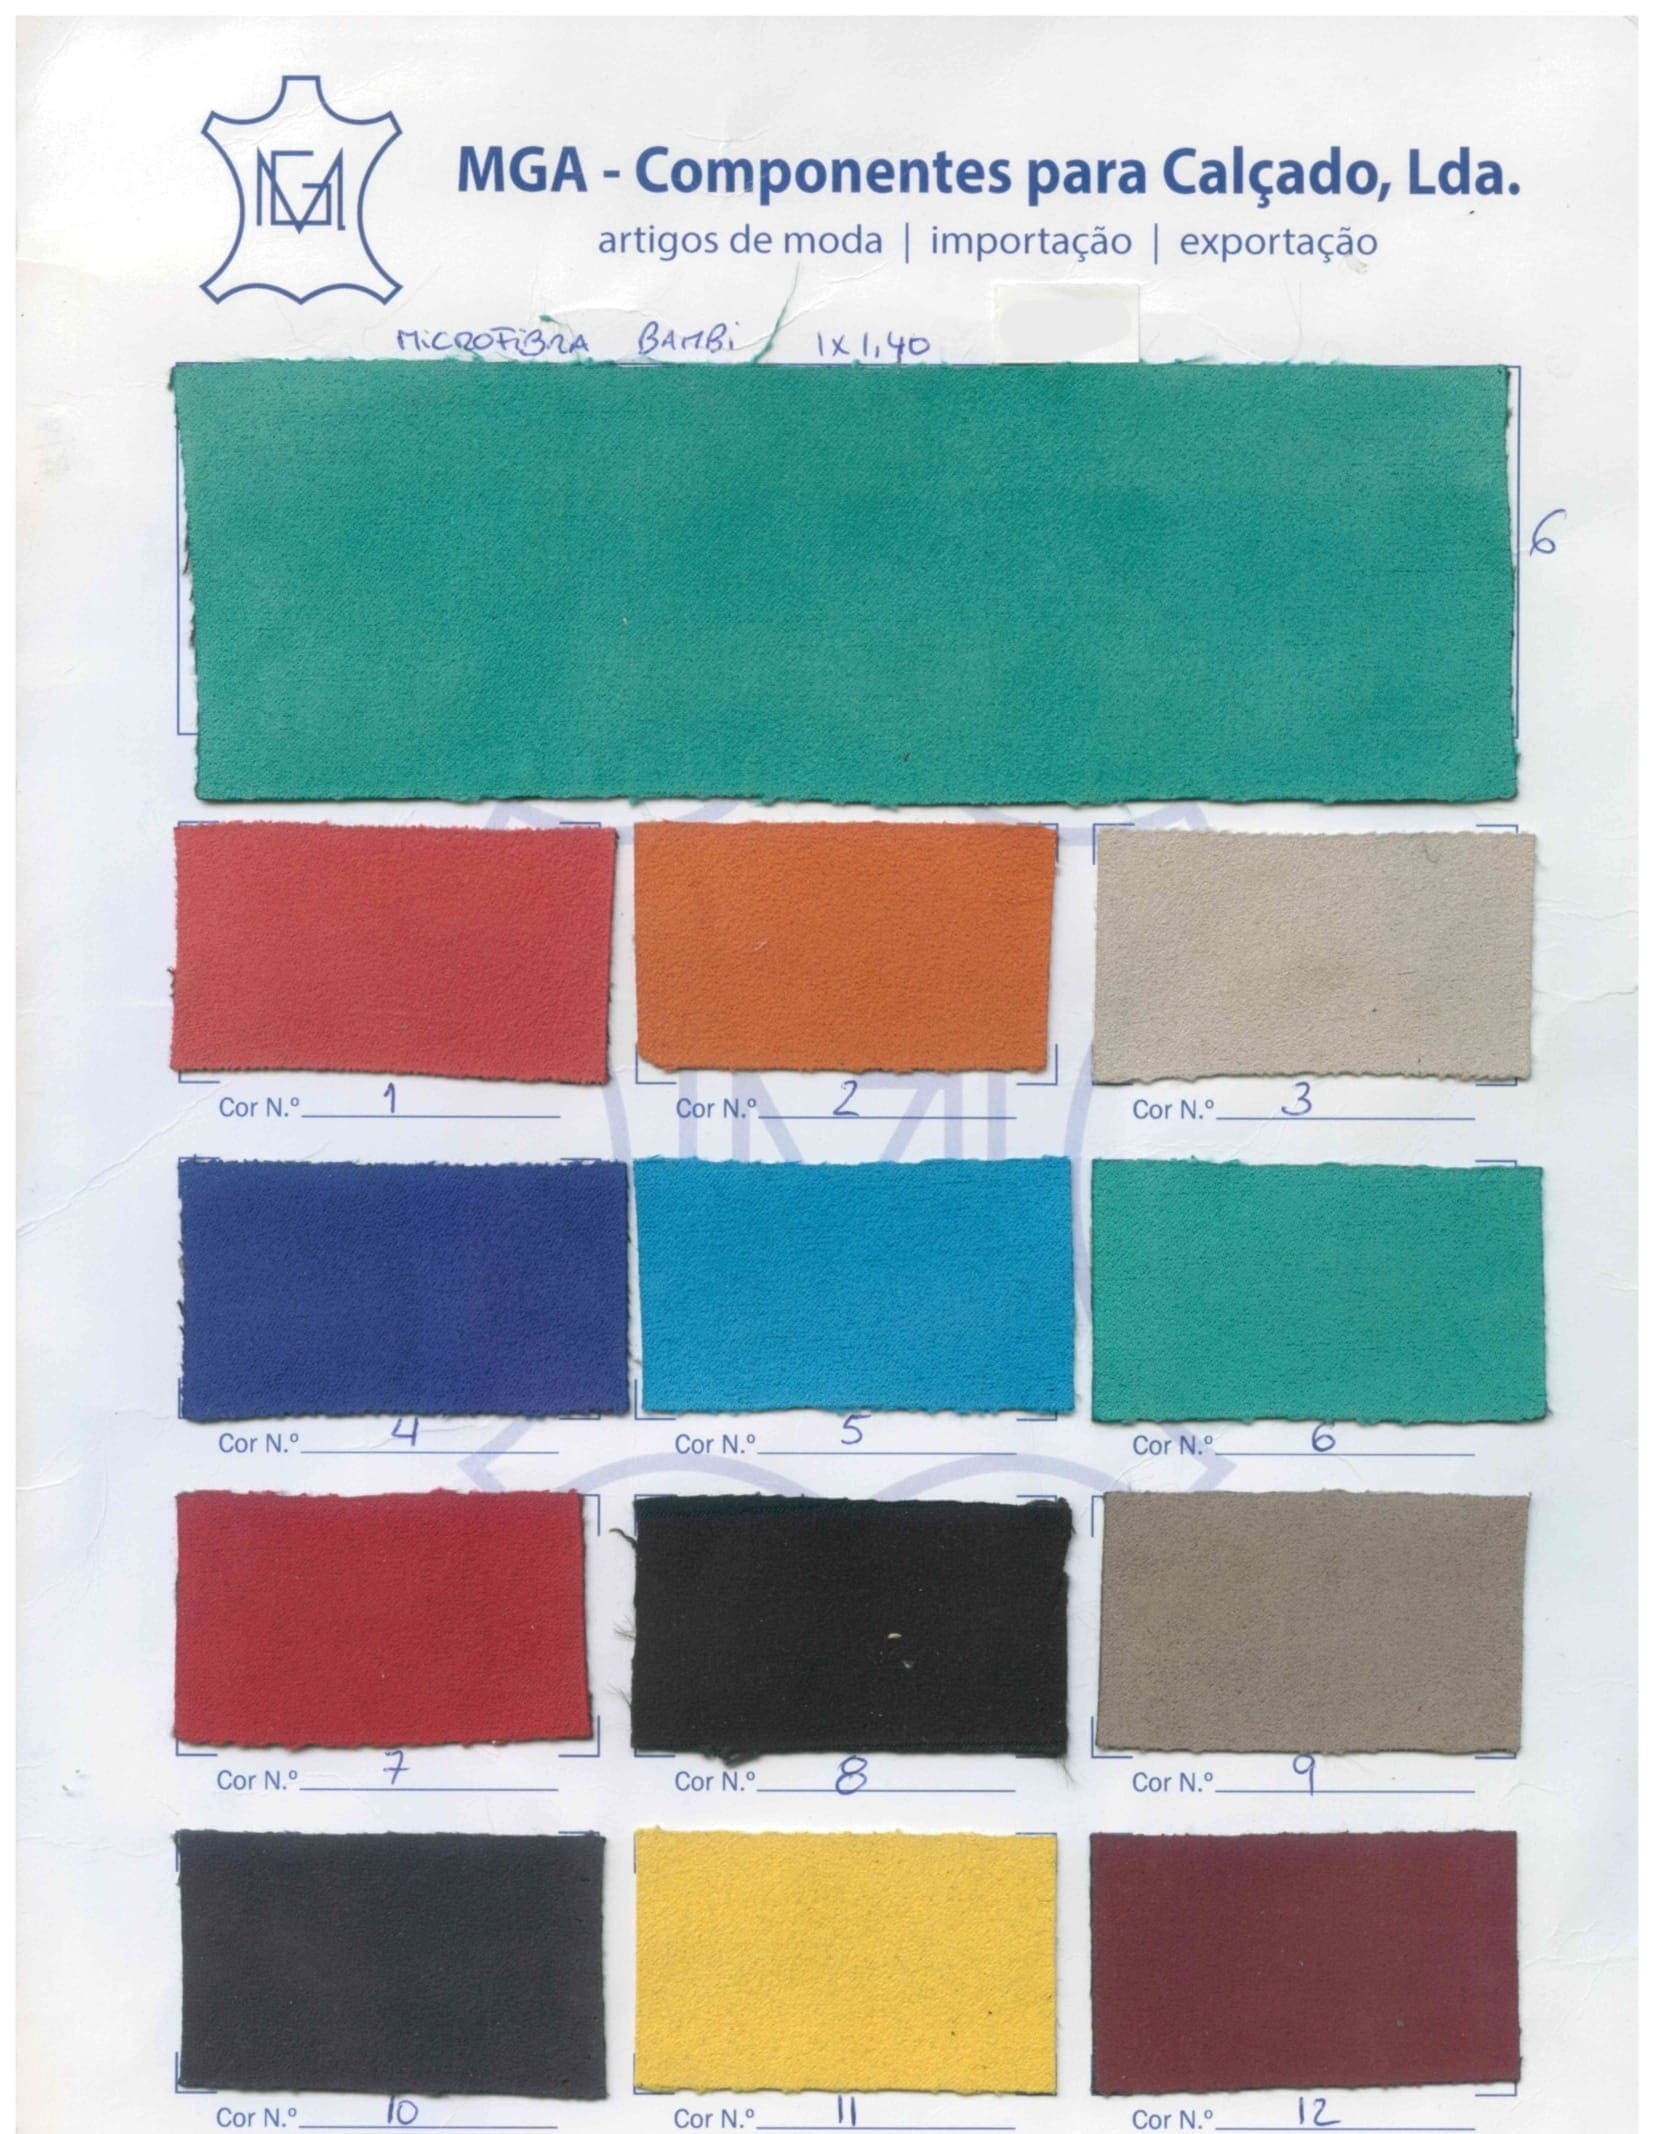 MGA
MGA - Componentes para Calçado, Lda.
artigos de moda | importação | exportação
MiCROFiBRA BAMBi 1x1,40
6
Cor N.º 1
Cor N.º 2
Cor N.º 3
Cor N.º 4
Cor N.º 5
Cor N.º 6
Cor N.º 7
Cor N.º 8
Cor N.º 9
Cor N.º 10
Cor N.º 11
Cor N.º 12